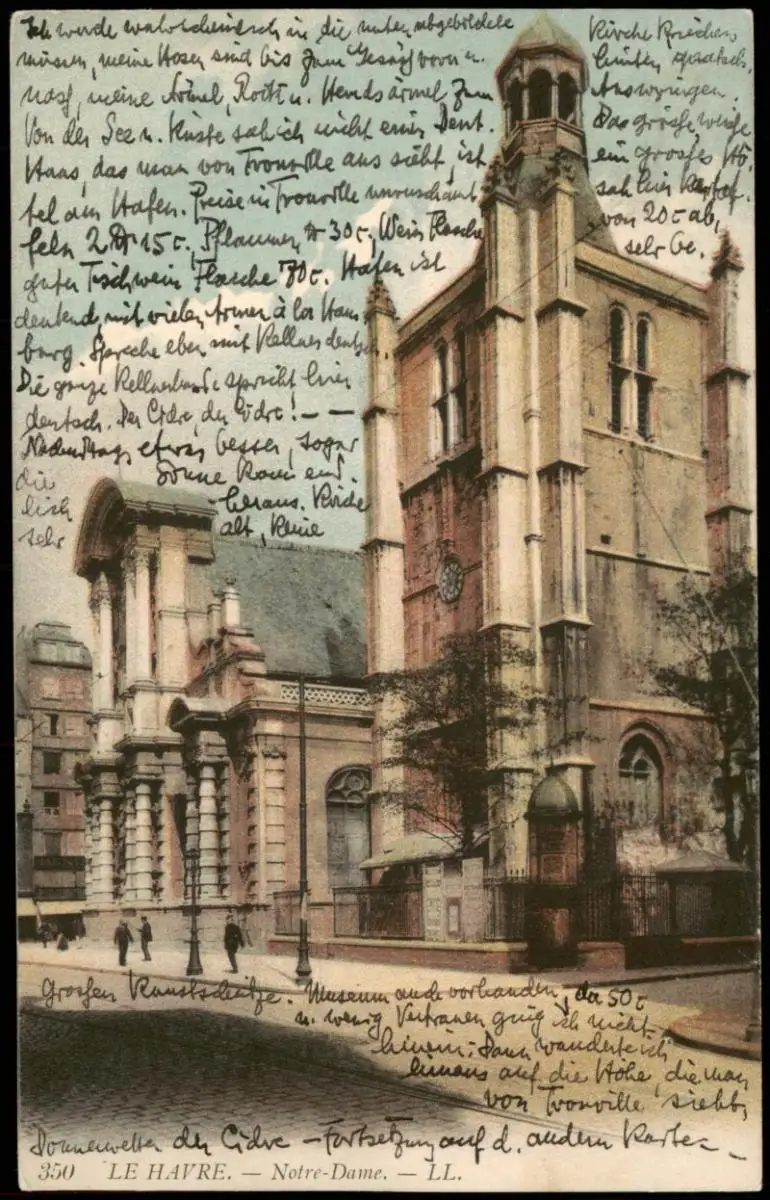 Ich werde wahrscheinlich in die unten abgebildete Kirche kriechen
müssen, meine Hosen sind bis zum Gesäß vorn u. hinten patsch-
naß, meine Ärmel, Rock u. Hemdsärmel zum Auswringen.
Von der See u. Küste sah ich nicht einen Deut. Das große weiße
Haus, das man von Trouville aus sieht, ist ein großes Hô-
tel am Hafen. Preise in Trouville unverschämt, sah hier Kartof-
feln 2 ℔ 15 c, Pflaumen ℔ 30 c, Wein Flasche von 20 c ab,
guter Tischwein Flasche 70 c. Hafen ist sehr be-
deutend, mit vielen Armen à la Ham-
burg. Spreche eben mit Kellner deutsch.
Die ganze Kellnerbande spricht hier
deutsch. Der Cidre, der Cidre! – –
Nachmittags etwas besser, sogar
die Sonne kam end-
lich heraus.
sehr alt, keine
Großen Kunstschätze. Museum auch vorhanden, da 50 c
u. wenig Vertrauen ging ich nicht
hinein. Dann wanderte ich
hinaus auf die Höhe, die man
von Trouville sieht,
Donnerwetter der Cidre – Fortsetzung auf d. andern Karte –
350 LE HAVRE. — Notre-Dame. — LL.